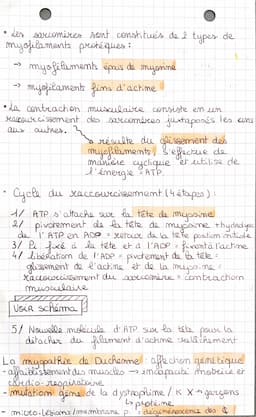 • Les sarcomères sont constitués de 2 types de
myofilaments protéiques :
→ myofilaments épais de myosine
→ myofilaments fins d'actine
• La contraction musculaire consiste en un
raccourcissement des sarcomères juxtaposés les uns
aux autres.
↳ résulte du glissement des
myofilaments, s'effectue de
manière cyclique et utilise de
l'énergie = ATP.
• Cycle du raccourcissement (4 étapes) :
1/ ATP s'attache sur la tête de myosine
2/ pivotement de la tête de myosine + hydrolyse
de l'ATP en ADP = retour de la tête position initiale
3/ Pi fixé à la tête et à l'ADP = l'actine
4/ libération de l'ADP = pivotement de la tête =
glissement de l'actine et de la myosine =
raccourcissement du sarcomère = contraction
musculaire
VOIR SCHÉMA !
5/ Nouvelle molécule d'ATP sur la tête pour la
détacher du filament d'actine = relâchement
La myopathie de Duchenne : affection génétique
- affaiblissement des muscles → incapacité motrice et
cardio-respiratoire
- mutation gène de la dystrophine / K X → garçons
↳ protéine
- micro-lésions / membrane p. : dégénérescence des